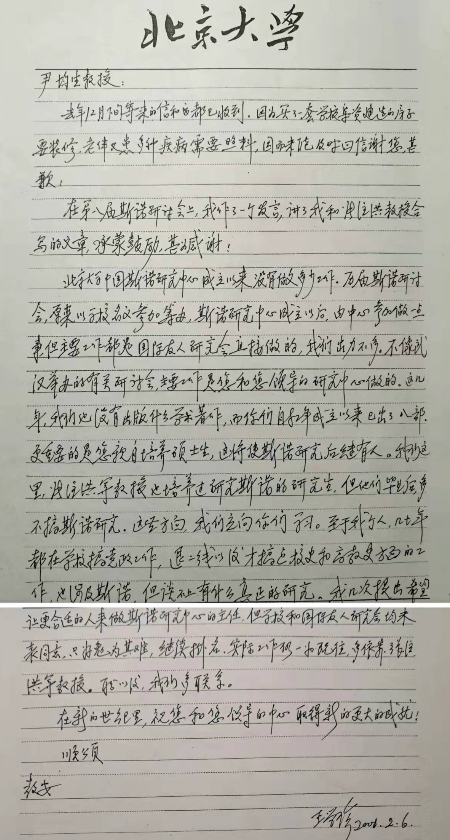 北京大学
尹均生教授：
去年12月下旬寄来的信和书都已收到。因为买了一套学校集资建造的房子
要装修，老伴又患多种疾病需要照料，因而未能及时回信谢您，甚
歉！
在第八届斯诺研讨会上，我作了一个发言，讲了我和张注洪教授合
写的文章，承蒙鼓励，甚为感谢！
北京大学中国斯诺研究中心成立以来，没有做多少工作。历届斯诺研讨
会，原来以学校名义参加筹办，斯诺研究中心成立以后，由中心参加做一点
事，但主要工作都是国际友人研究会直接做的，我们出力不多。不像武
汉举办的有关研讨会，主要工作是您和您领导的研究中心做的。这几
年，我们也没有出版什么学术著作，而你们自成立以来已出了八部。
更重要的是您亲自培养硕士生，这将使斯诺研究后继有人。我们这
里，张注洪等教授也培养过研究斯诺的研究生，但他们毕业后多
不搞斯诺研究。这些方向，我们应向你们学习。至于我个人，几十年
都在学校搞党政工作，退二线以后才搞点校史和高教史方面的工
作，也涉及斯诺，但谈不上有什么真正的研究。我几次提出希望
让更合适的人来做斯诺研究中心的主任，但学校和国际友人研究会均未
来同意，只好勉为其难，继续挂名，实际工作很一般，多依靠张注
洪等教授。今后，我们多联系。
在新的世纪里，祝您和您领导的中心取得新的更大的成就！
顺颂
教安
王学珍 2001.2.6.